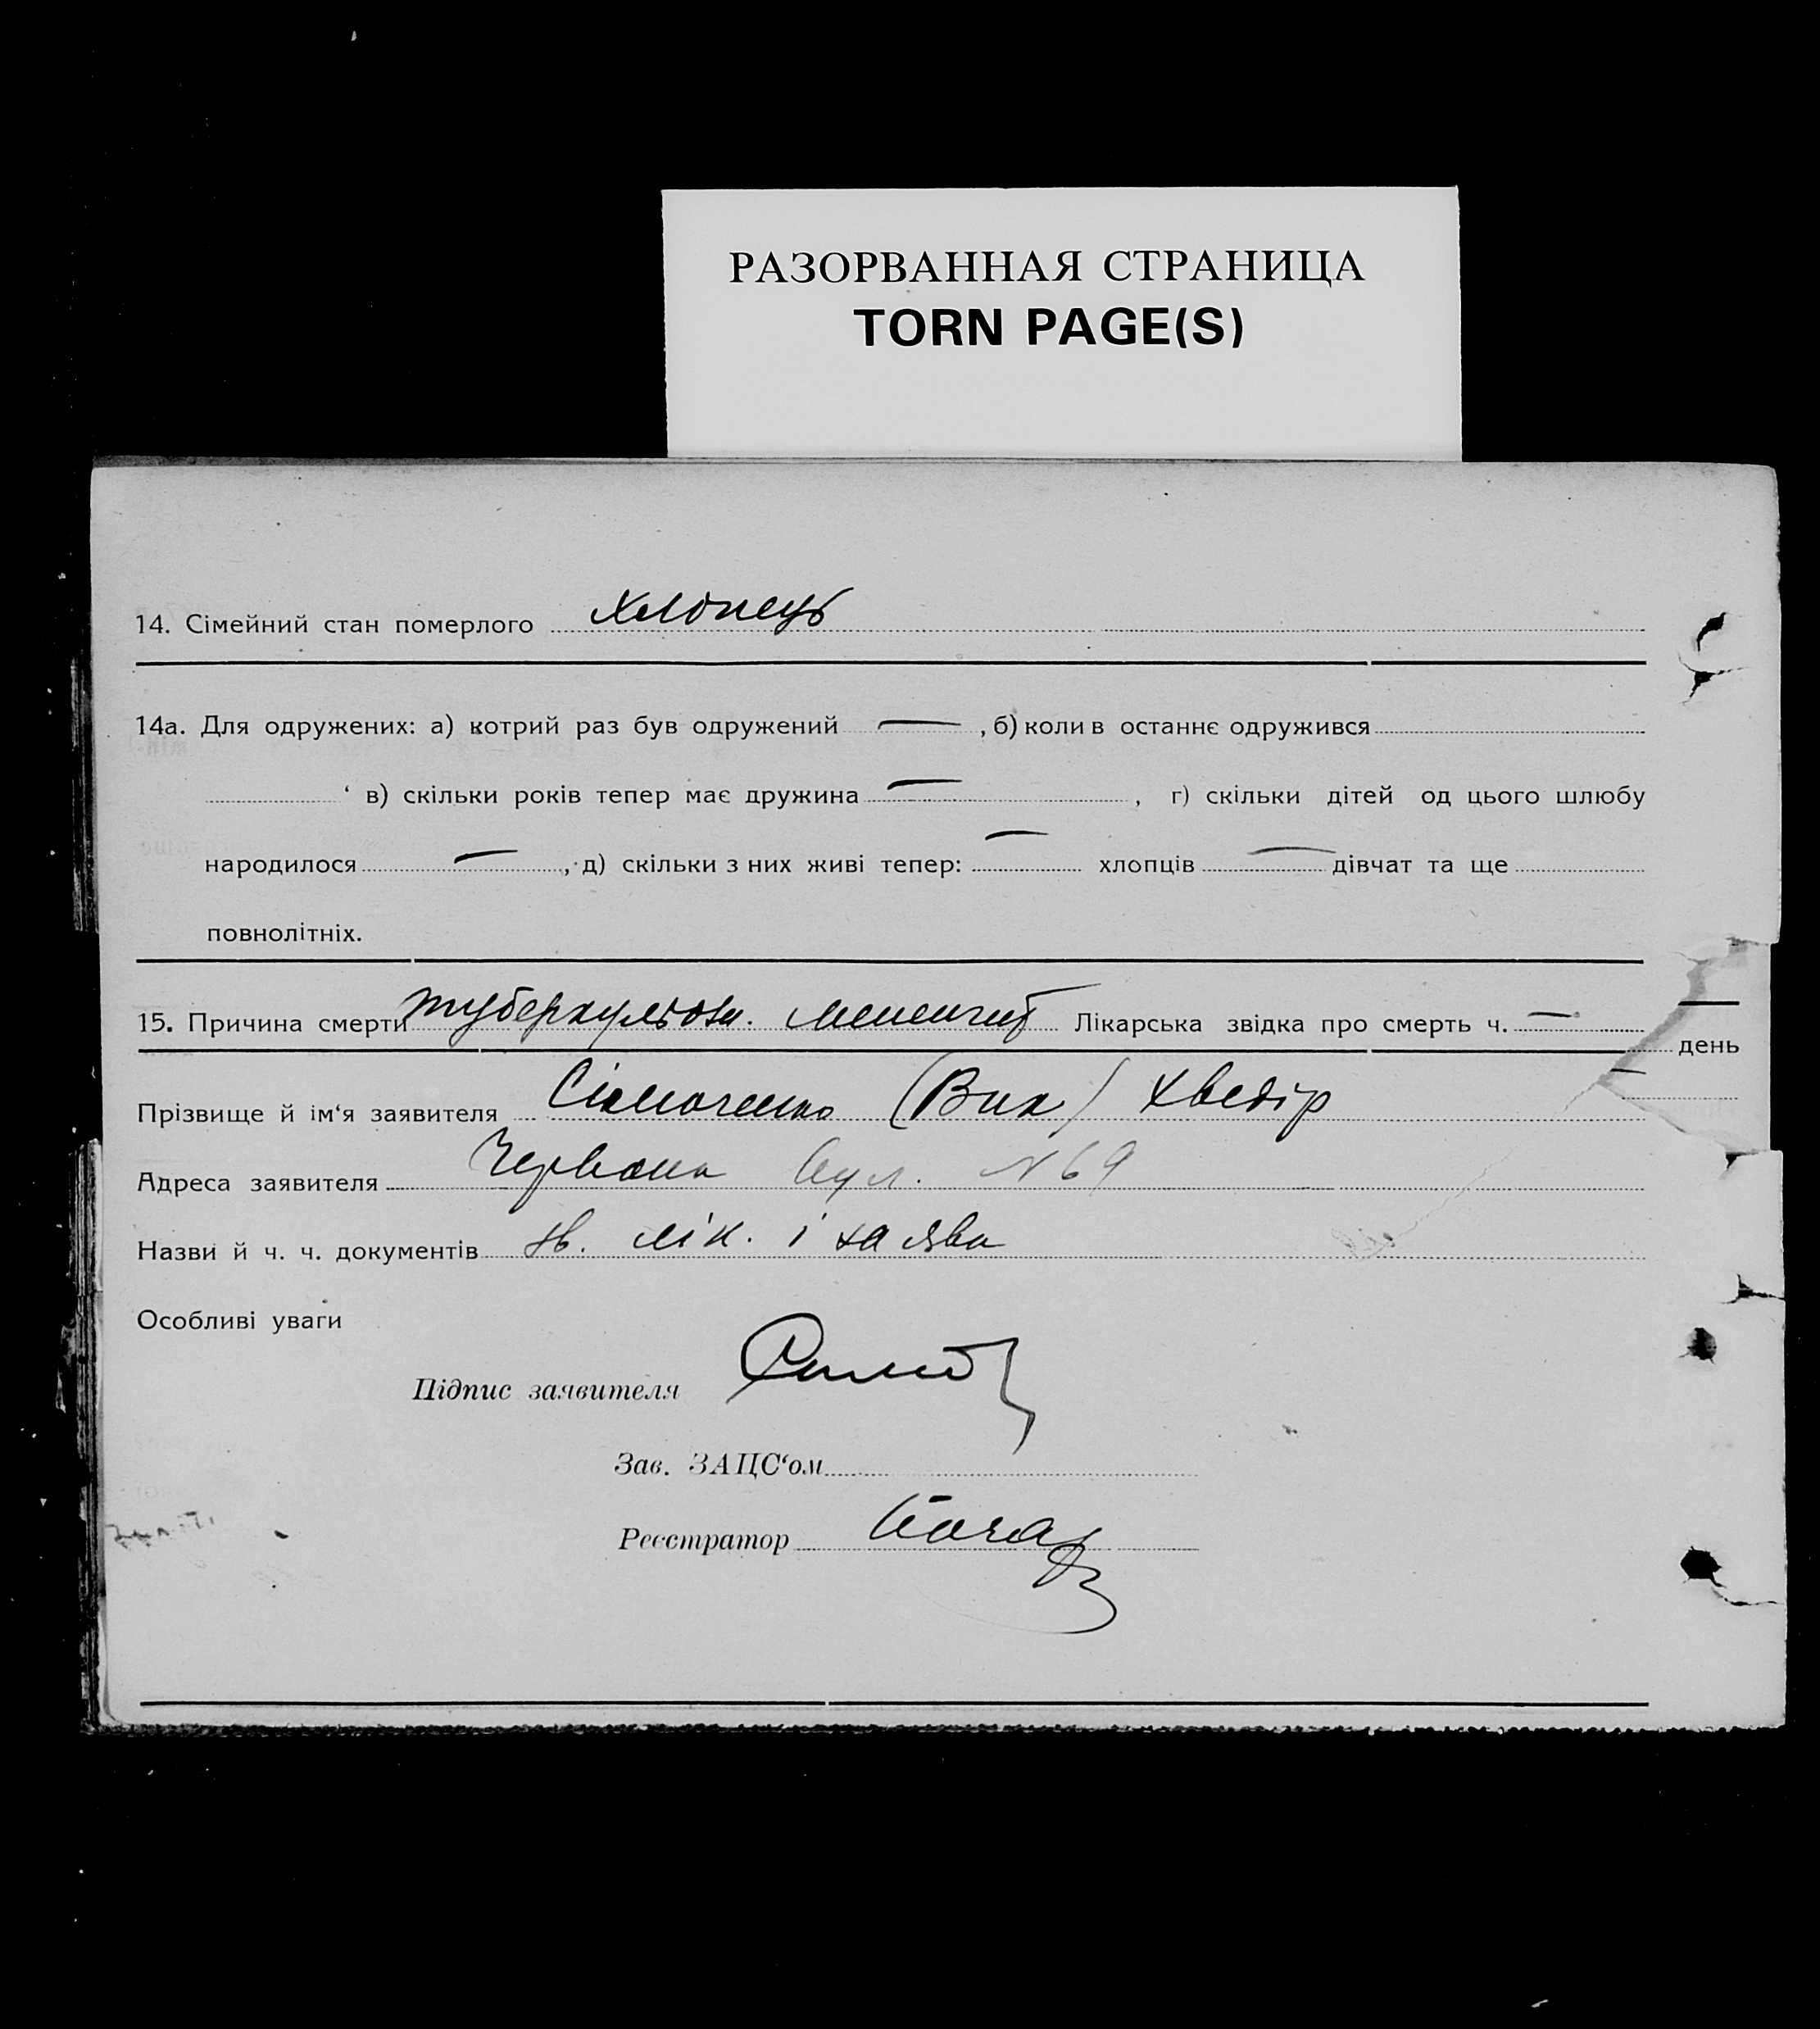 РАЗОРВАННАЯ СТРАНИЦА
TORN PAGE(S)
14. Сімейний стан померлого хлопець
14а. Для одружених: а) котрий раз був одружений — , б) коли в останнє одружився
в) скільки років тепер має дружина — , г) скільки дітей од цього шлюбу
народилося — , д) скільки з них живі тепер: — хлопців — дівчат та ще
повнолітніх.
15. Причина смерти туберкульозн. менингит Лікарська звідка про смерть ч. —
день
Прізвище й ім‘я заявителя (Вик) Хведір
Адреса заявителя Червона вул. N 69
Назви й ч. ч. документів зв. лік. і заява
Особливі уваги
Підпис заявителя
Зав. ЗАЦС‘ом
Реєстратор